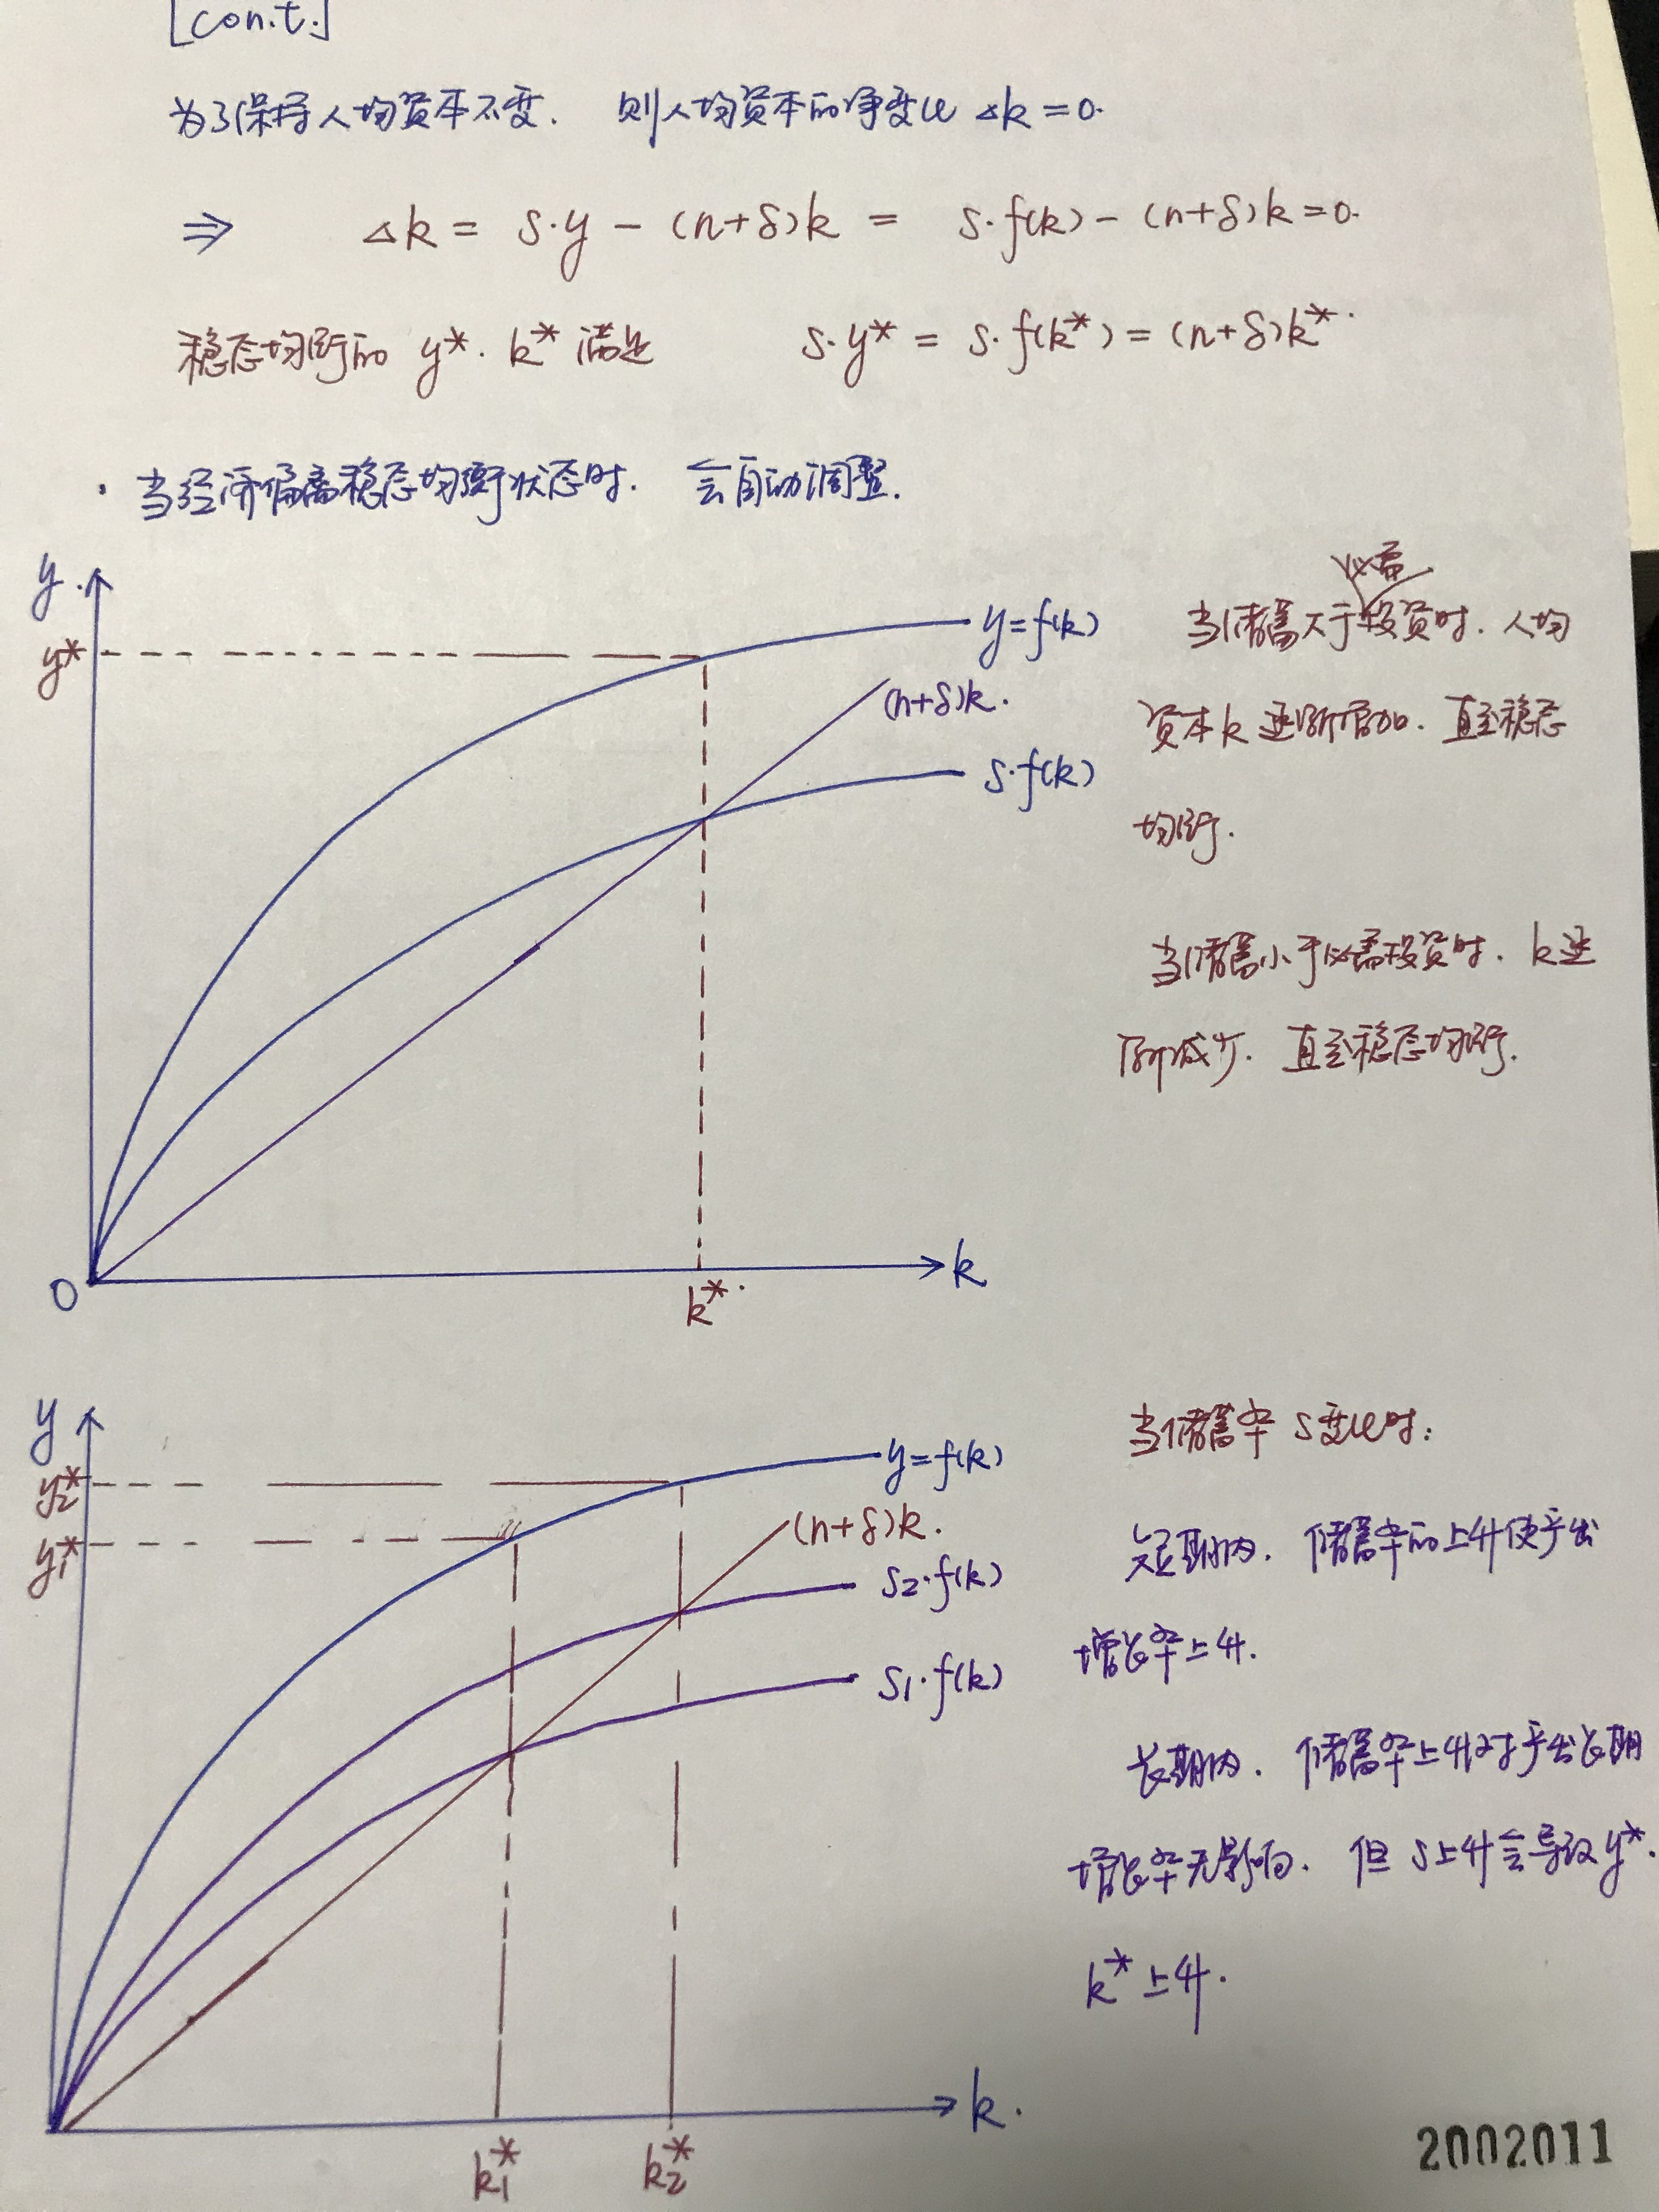 [con.t.]
为了保持人均资本不变. 则人均资本的净变化 Δk = 0.
⇒ Δk = s·y - (n+δ)k = s·f(k) - (n+δ)k = 0.
稳态均衡的 y*. k* 满足 s·y* = s·f(k*) = (n+δ)k*.
· 当经济偏离稳态均衡状态时. 会自动调整.
y
y*
y=f(k)
(n+δ)k.
s·f(k)
O
k*.
k
必需
当储蓄大于投资时. 人均
资本k逐渐增加. 直至稳态
均衡.
当储蓄小于必需投资时. k逐
渐减少. 直至稳态均衡.
y
y2*
y1*
y=f(k)
(n+δ)k.
s2·f(k)
s1·f(k)
k1*
k2*
k.
当储蓄率 s变化时:
短期内. 储蓄率的上升使产出
增长率上升.
长期内. 储蓄率上升对产出长期
增长率无影响. 但 s上升会导致y*.
k* 上升.
2002011